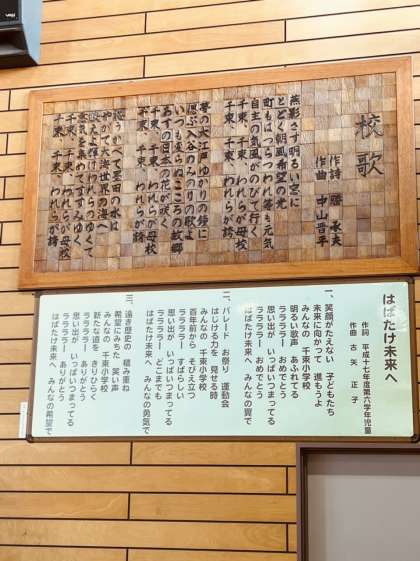 校歌
作詩 勝 承夫
作曲 中山晋平
燕影さす明るい窓に
とどく朝風希望の光
町もはつらつわれ等も元気
自主の気風がのびて行く
千束、千束、われらが母校
千束、千束、われらが誇
昔の大江戸ゆかりの鐘に
偲ぶ入谷のみのりの歌よ
いつも変らぬこころの故郷
あすの日本の花が咲く
千束、千束、われらが母校
千束、千束、われらが誇
うかべて墨田の水は
やがて大海世界の海へ
映えよ輝けわれらのゆくて
意気を集めてすすみゆく
千束、千束、われらが母校
千束、千束、われらが誇
はばたけ未来へ
作詞 平成十七年度第六学年児童
作曲 古矢 正子
一、笑顔がたえない 子どもたち
未来に向かって 進もうよ
みんなの 千束小学校
明るい歌声 あふれてる
ララララー おめでとう
思い出が いっぱいつまってる
ララララー おめでとう
はばたけ未来へ みんなの翼で
二、パレード お祭り 運動会
はじける力を 見せる時
みんなの 千束小学校
百年前から そびえ立つ
ララララー すばらしい
思い出が いっぱいつまってる
ララララー どこまでも
はばたけ未来へ みんなの勇気で
三、遠き歴史の 積み重ね
希望にみちた 笑い声
みんなの 千束小学校
新たな道を きりひらく
ララララー ありがとう
思い出が いっぱいつまってる
ララララー ありがとう
はばたけ未来へ みんなの希望で